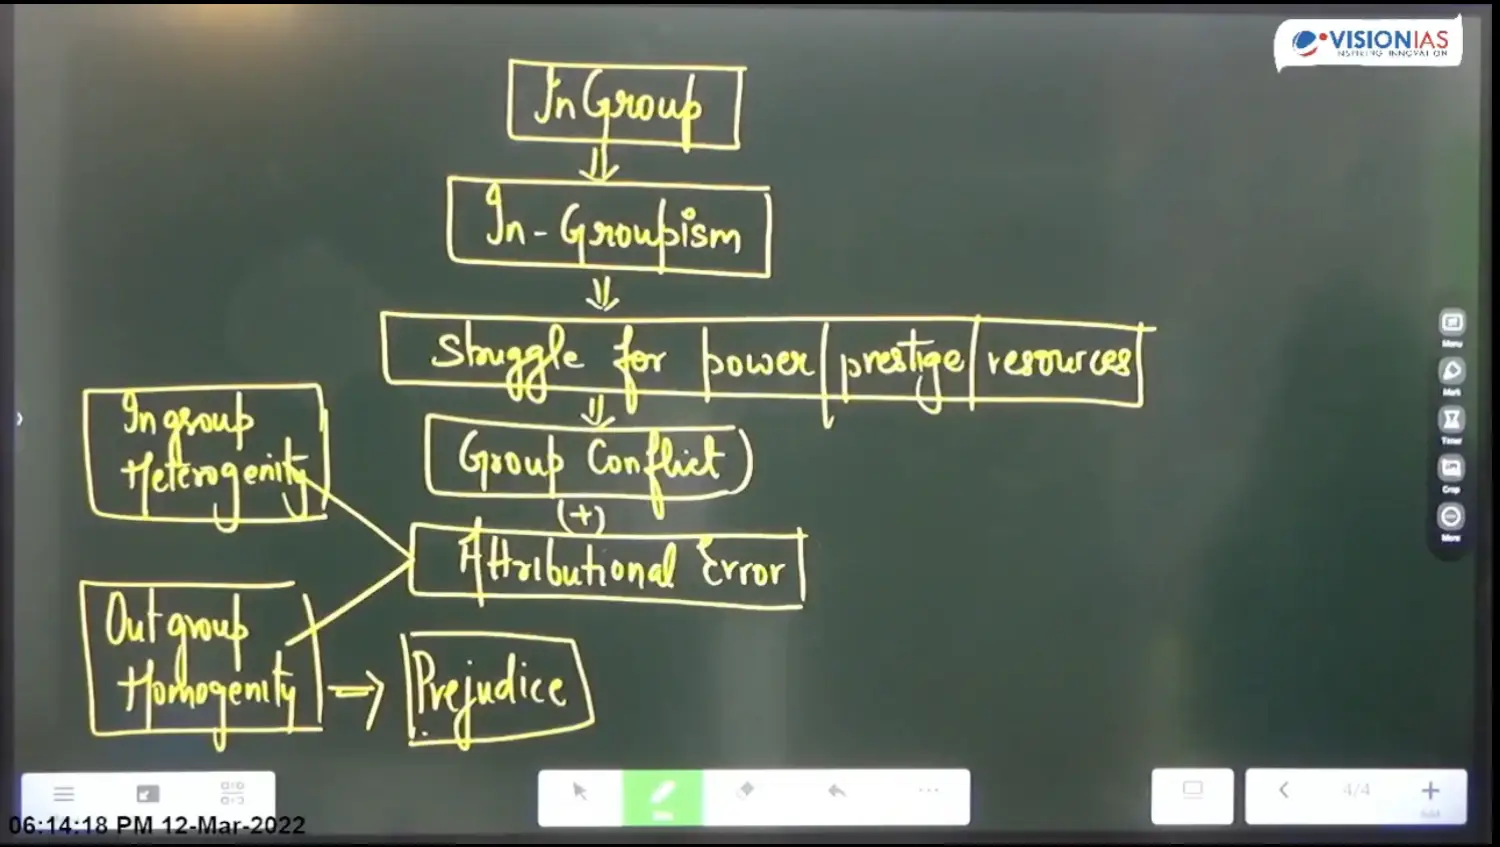 VISIONIAS
INSPIRING INNOVATION
In Group
In-Groupism
Struggle for power prestige resources
Ingroup
Heterogenity
Group Conflict
(+)
Attributional Error
Outgroup
Homogenity
Prejudice
Menu
Mark
Timer
Crop
More
4/4
Add
06:14:18 PM 12-Mar-2022